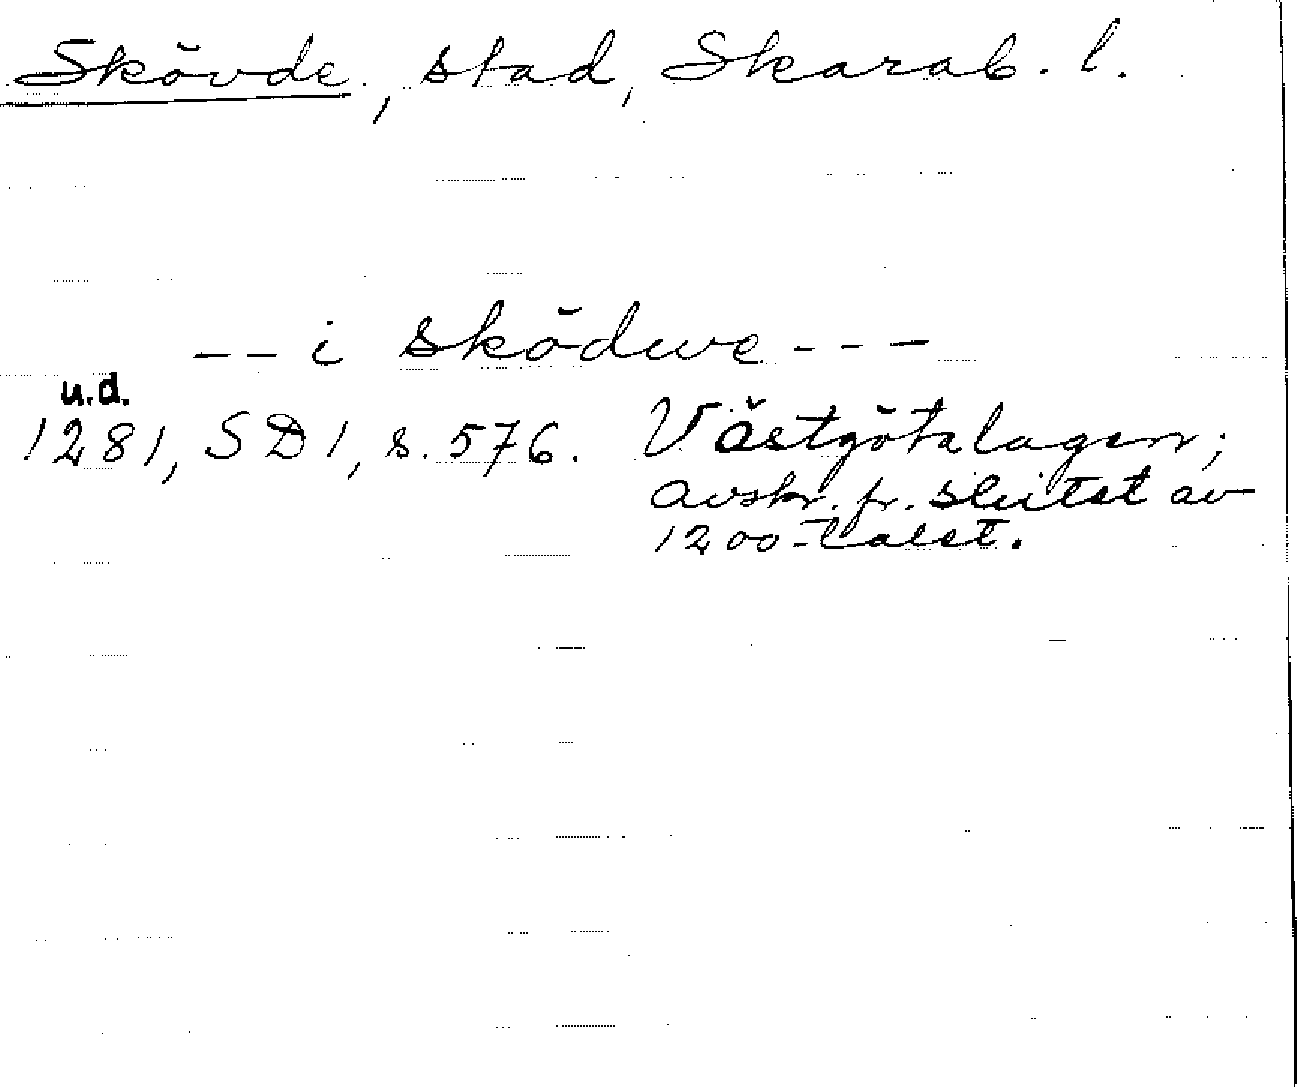 Skövde, stad, Skarab. l.
-- i sködwe ---
u.d.
1281, SD 1, s. 576. Västgötalagen;
avskr. fr. slutet av
1200-talet.